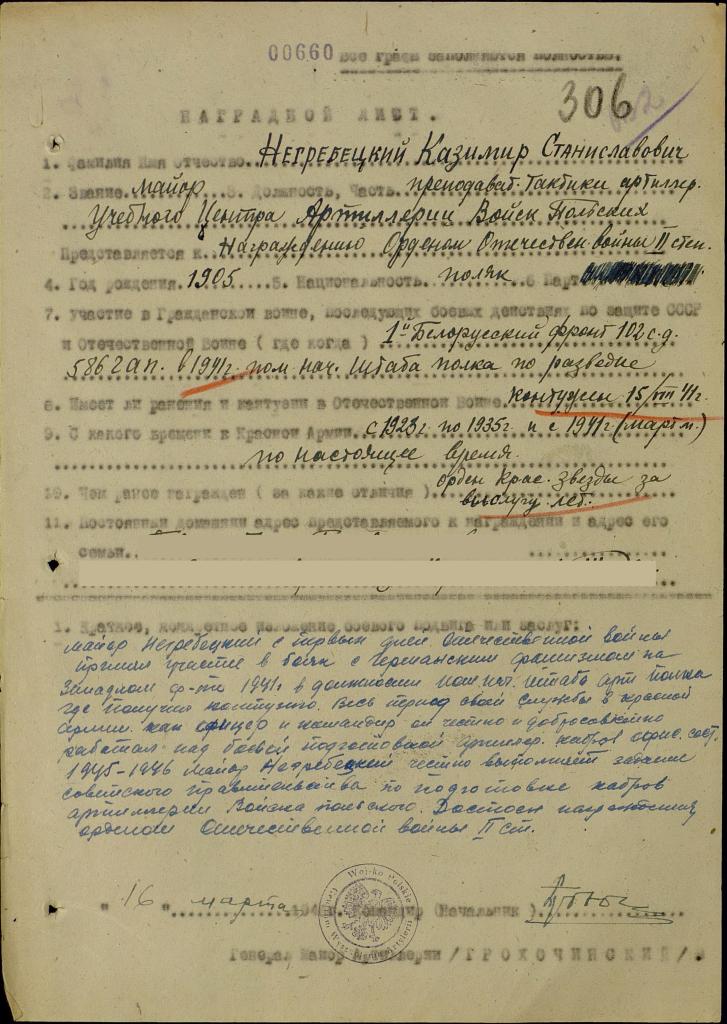 00660 Все графы заполняются полностью.
306
НАГРАДНОЙ ЛИСТ.
1. Фамилия Имя Отчество Негребецкий Казимир Станиславович
2. Звание майор 3. Должность, Часть преподават. тактики артиллер.
Учебного Центра Артиллерии Войск Польских
Представляется к награждению Орденом Отечествен войны II степ.
4. Год рождения 1905 5. Национальность поляк 6 Парт
7. Участие в Гражданской войне, последующих боевых действиях по защите СССР
и Отечественной Войне ( где когда ) 1й Белорусский фронт 102 с.д.
586 гап. в 1941г. пом. нач. штаба полка по разведке
8. Имеет ли ранения и контузии в Отечественной Войне контужен 15/VIII 41г.
9. С какого времени в Красной Армии с 1923г. по 1935г. и с 1941г. (март м.)
по настоящее время.
10. Чем ранее награжден ( за какие отличия ) орден Крас. звезды за
выслугу лет.
11. Постоянный домашний адрес представляемого к награждению и адрес его
семьи
1. Краткое, конкретное изложение боевого подвига или заслуг:
майор Негребецкий с первых дней Отечественной войны
принял участие в боях с германским фашизмом на
Западном ф-те 1941г. в должности пом. нач. штаба арт полка
где получил контузию. Весь период свой службы в красной
армии как офицер и командир он честно и добросовестно
работал над боевой подготовкой артиллер. кадров офис. сост.
1945-1946 майор Негребецкий честно выполняет задание
советского правительства по подготовке кадров
артиллерии Войска польского. Достоен награждения
орденом Отечественной войны II ст.
" 16 " марта 194 г. Командир (Начальник)
Wojsko Polskie
Генерал Майор Артиллерии / ГРОХОЧИНСКИЙ /